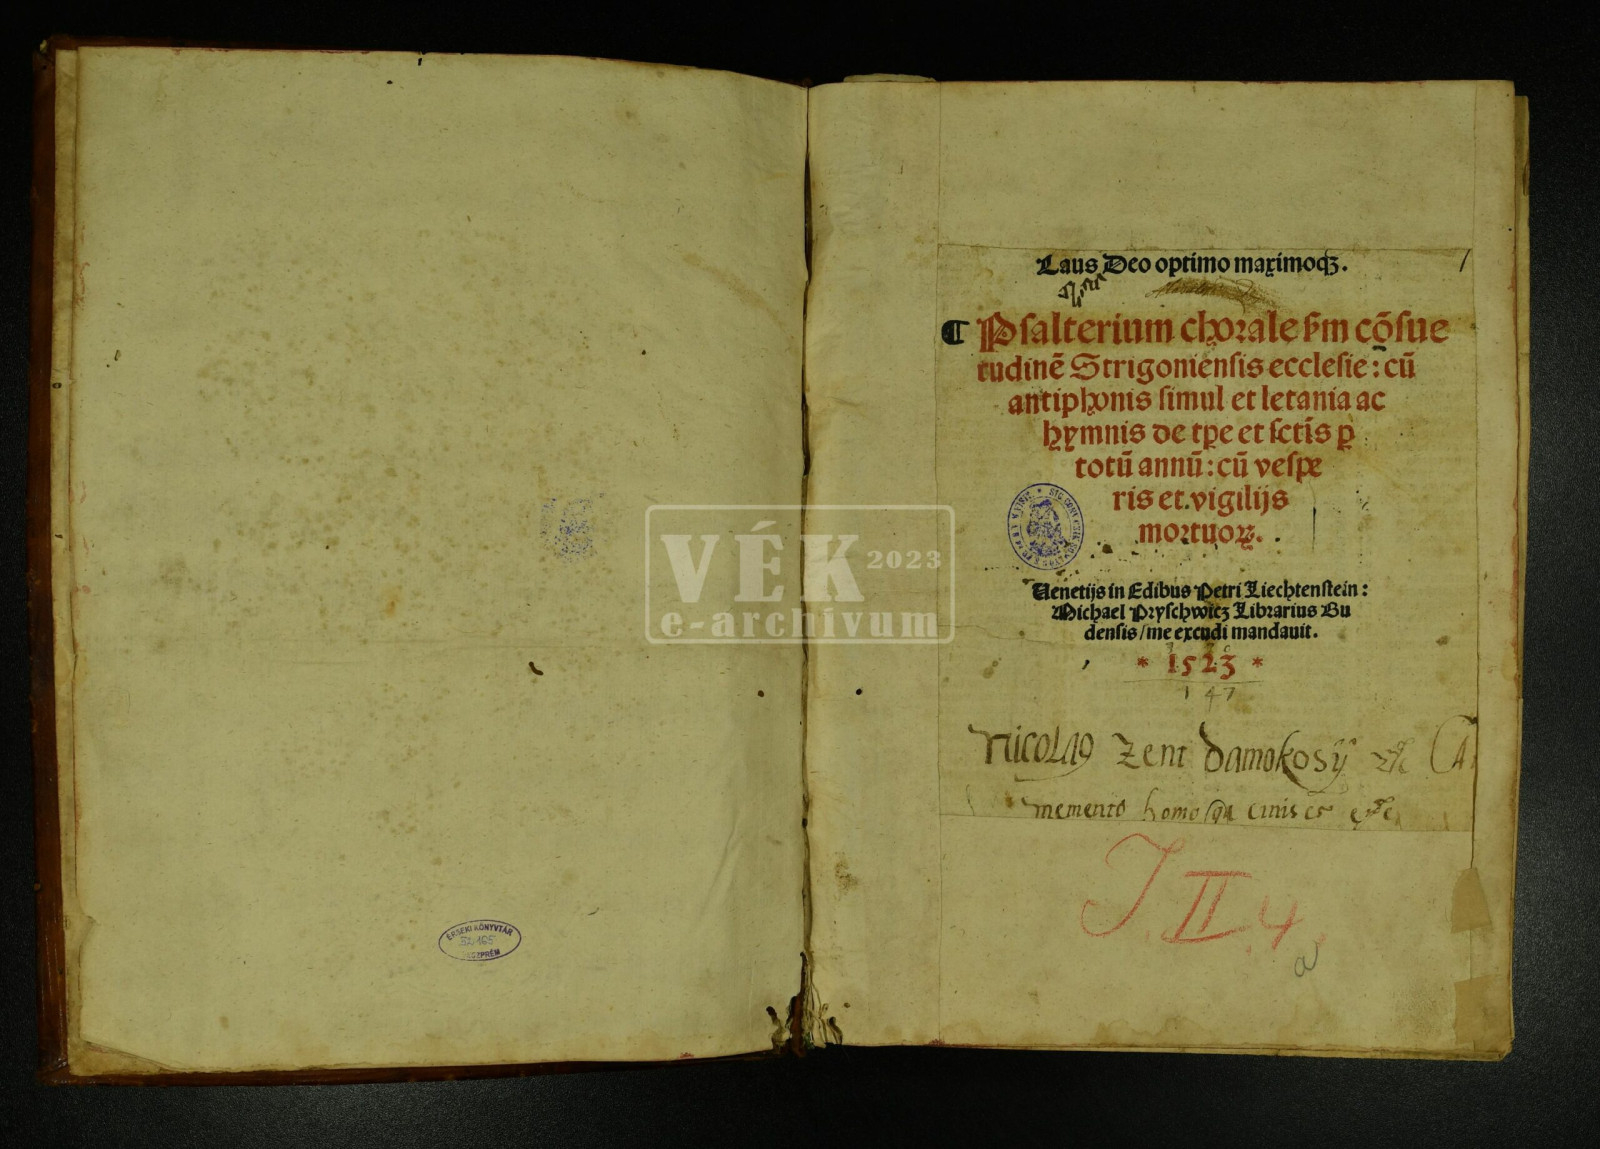 Laus Deo optimo maximoqꝫ.
¶ Psalterium chorale ẜm cōsue
tudinē Strigoniensis ecclesie: cū
antiphonis simul et letania ac
hymnis de tp̄e et sctīs ꝑ
totū annū: cū vespe
ris et vigilijs
mortuoꝝ.
Venetijs in Edibus Petri Liechtenstein:
Michael Pryschwicz Librarius Bu
densis/me excudi mandauit.
* 1523 *
1 47
Nicolaꝰ Zent Damokosÿ
memento homo qa cinis es
I. II. 4.
a
ÉRSEKI KÖNYVTÁR
VESZPRÉM
VÉK 2023
e-archívum